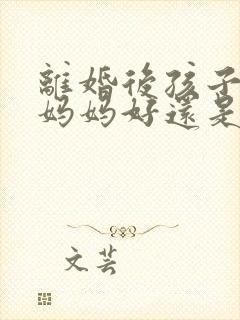 離婚後孩子
妈妈好還是
文芸